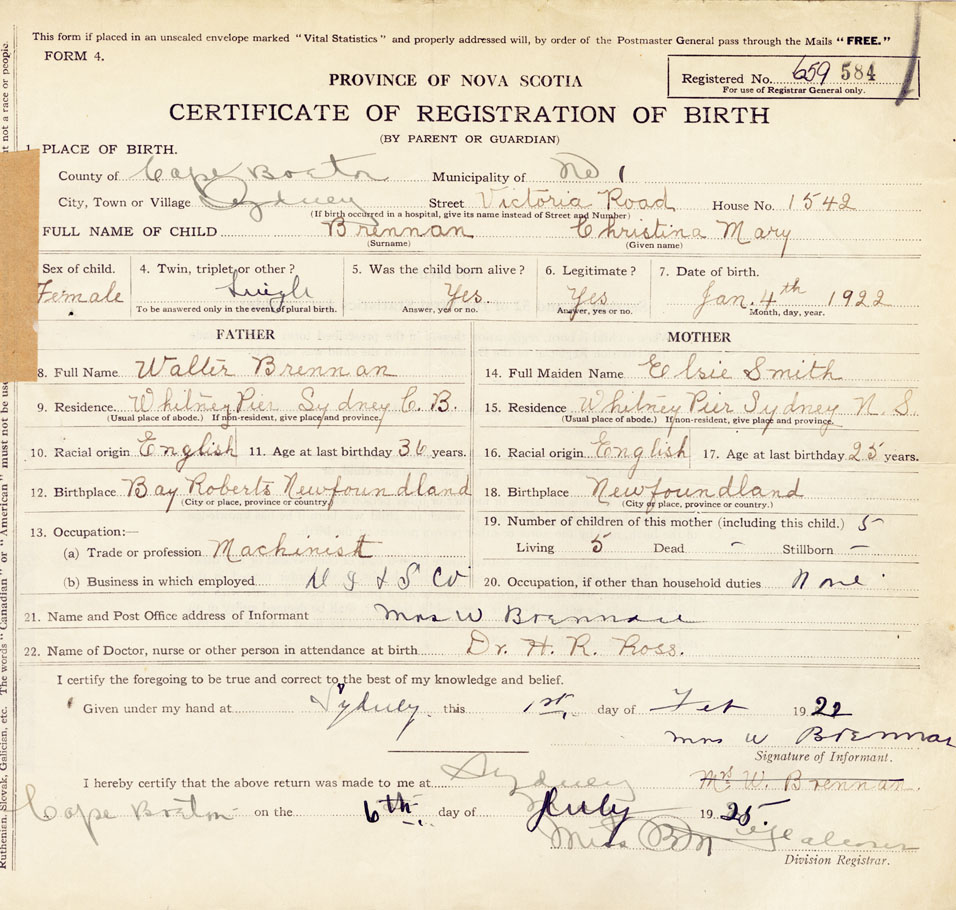 This form if placed in an unsealed envelope marked "Vital Statistics" and properly addressed will, by order of the Postmaster General pass through the Mails "FREE."
FORM 4.
PROVINCE OF NOVA SCOTIA
Registered No. 659 584
For use of Registrar General only.
CERTIFICATE OF REGISTRATION OF BIRTH
(BY PARENT OR GUARDIAN)
1. PLACE OF BIRTH.
County of Cape Breton Municipality of No 1
City, Town or Village Sydney Street Victoria Road House No. 1542
(If birth occurred in a hospital, give its name instead of Street and Number)
FULL NAME OF CHILD Brennan Christina Mary
(Surname) (Given name)
Sex of child. 4. Twin, triplet or other? 5. Was the child born alive? 6. Legitimate? 7. Date of birth.
Female Single Yes Yes Jan. 4th 1922
To be answered only in the event of plural birth. Answer, yes or no. Answer, yes or no. Month, day, year.
FATHER MOTHER
8. Full Name Walter Brennan 14. Full Maiden Name Elsie Smith
9. Residence Whitney Pier Sydney C.B. 15. Residence Whitney Pier Sydney N.S.
(Usual place of abode.) If non-resident, give place and province. (Usual place of abode.) If non-resident, give place and province.
10. Racial origin English 11. Age at last birthday 36 years. 16. Racial origin English 17. Age at last birthday 25 years.
12. Birthplace Bay Roberts Newfoundland 18. Birthplace Newfoundland
(City or place, province or country.) (City or place, province or country.)
13. Occupation:— 19. Number of children of this mother (including this child.) 5
(a) Trade or profession Machinist Living 5 Dead – Stillborn –
(b) Business in which employed & S Co 20. Occupation, if other than household duties None
21. Name and Post Office address of Informant Mrs W Brennan
22. Name of Doctor, nurse or other person in attendance at birth Dr. H. R. Ross.
I certify the foregoing to be true and correct to the best of my knowledge and belief.
Given under my hand at Sydney. this 1st. day of Feb 1922
Mrs W Brennan
Signature of Informant.
I hereby certify that the above return was made to me at Sydney Mrs. W. Brennan.
Cape Breton on the 6th. day of July 1925.
Miss B M
Division Registrar.
Ruthenian, Slovak, Galician, etc. The words "Canadian" or "American" must not be use
not a race or people.